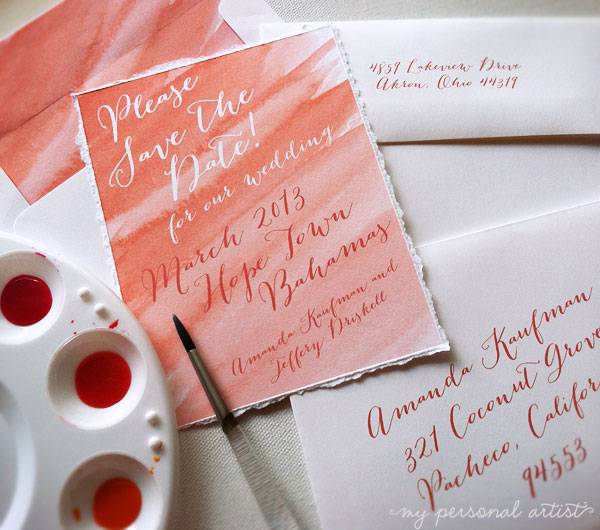 Please
Save the
Date!
for our wedding
March 2013
Hope Town
Bahamas
Amanda Kaufman and
Jeffery Driskell
4859 Lakeview Drive
Akron, Ohio 44319
Amanda Kaufman
321 Coconut Grove
Pacheco, Califor
94553
my personal artist